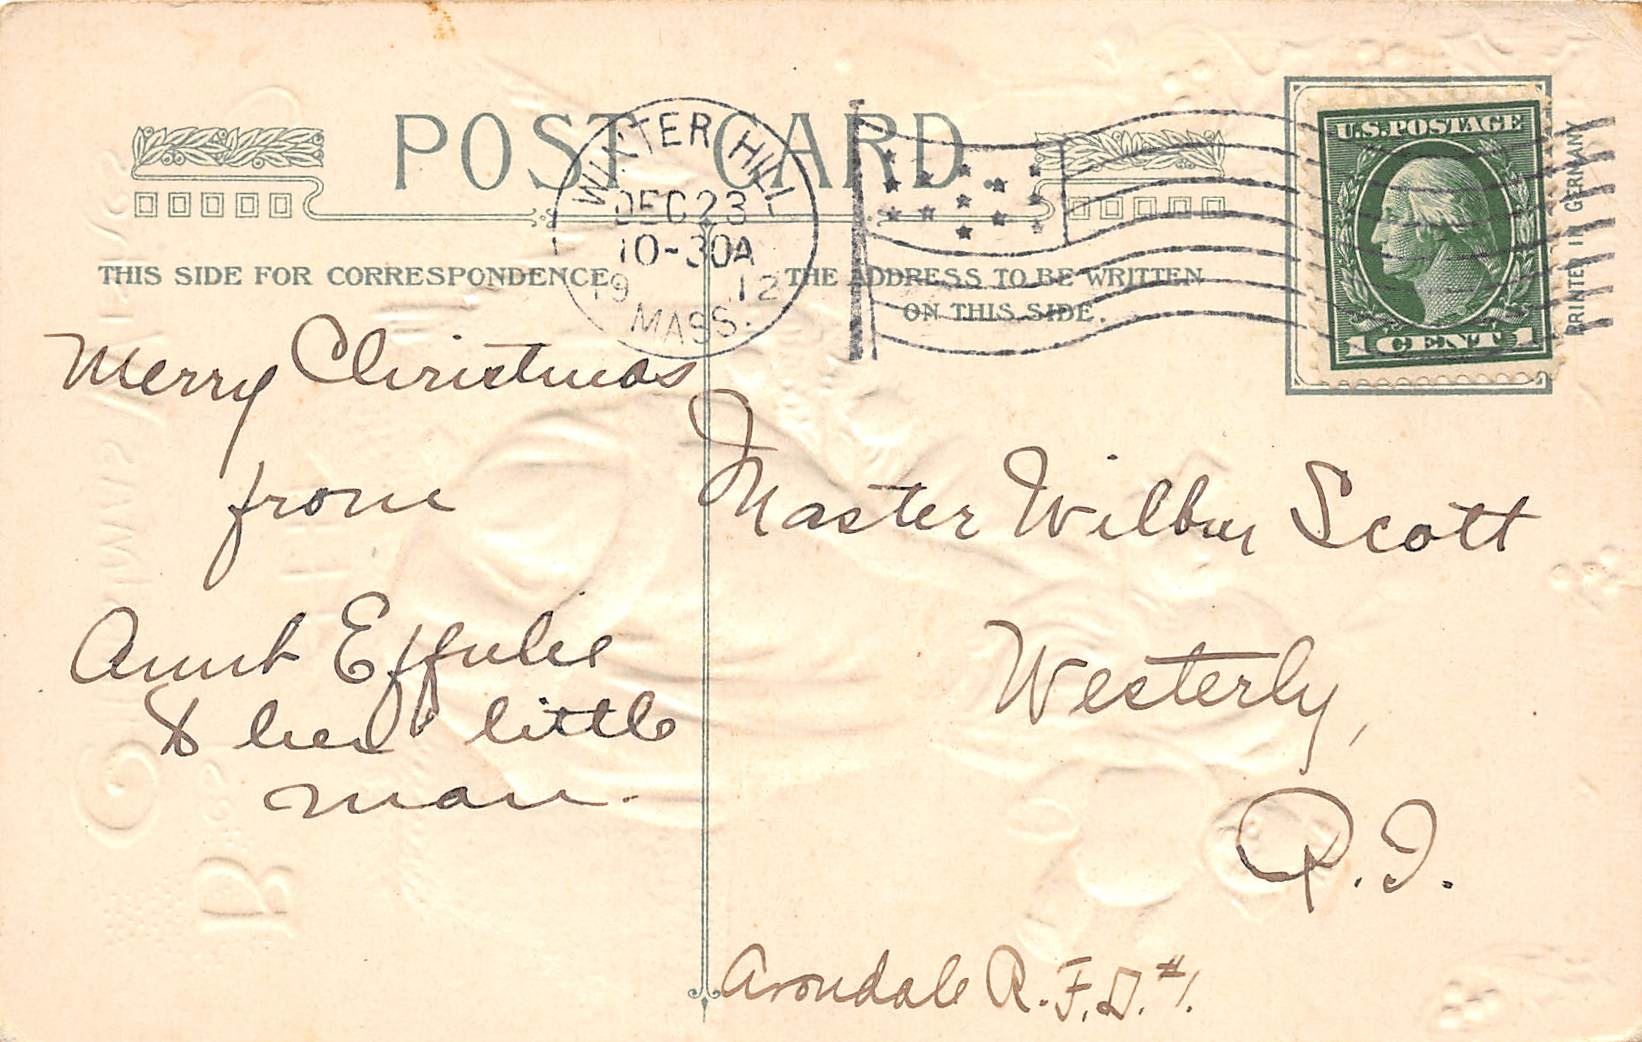 POST CARD
WINTER HILL
DEC 23
10-30A
19 12
MASS.
U.S.POSTAGE
1 CENT 1
PRINTED IN GERMANY
THIS SIDE FOR CORRESPONDENCE
THE ADDRESS TO BE WRITTEN
ON THIS SIDE.
Merry Christmas
from
Aunt
& her little
man.
Master Wilbur Scott
Westerly,
R.I.
Avondale R.F.D. #1.